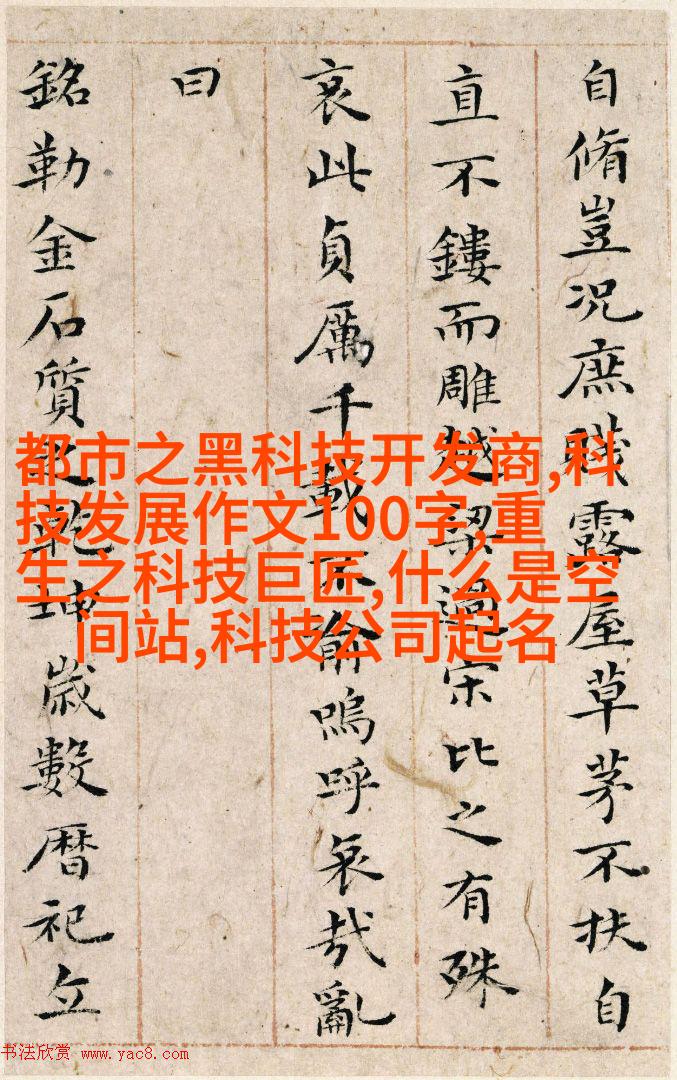 自脩豈况庶賤露屋草茅不扶自
直不鏤而雕越梁過宋比之有殊
哀此貞厲千載不渝嗚呼哀哉亂
曰
銘勒金石質之乾坤歲數暦祀立
都市之黑科技开发商,科
技发展作文100字,重
生之科技巨匠,什么是空
间站,科技公司起名
书法欣赏 www.yac8.com